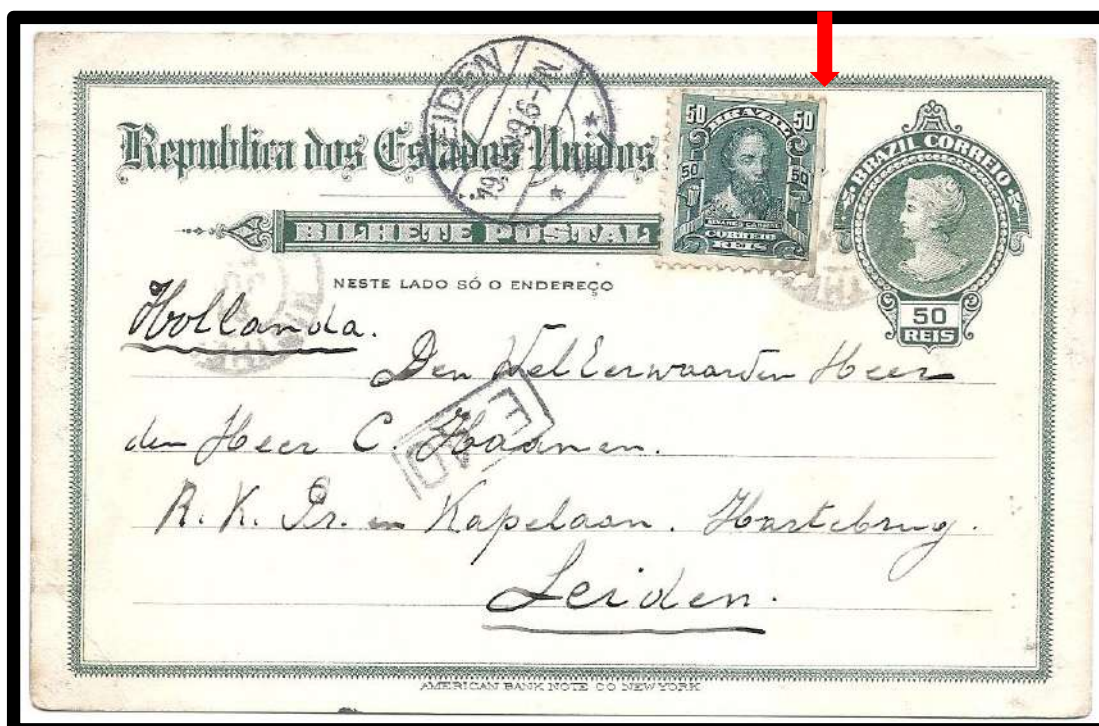 Republica dos Estados Unidos
BILHETE POSTAL
NESTE LADO SÓ O ENDEREÇO
50 50
BRAZIL
50 50
CORREIO
REIS
BRAZIL CORREIO
50
REIS
Hollanda.
Den WelEerwaarden Heer
den Heer C.
R. K. Pr. en Kapelaan. Hartebrug.
Leiden.
AMERICAN BANK NOTE CO NEW YORK